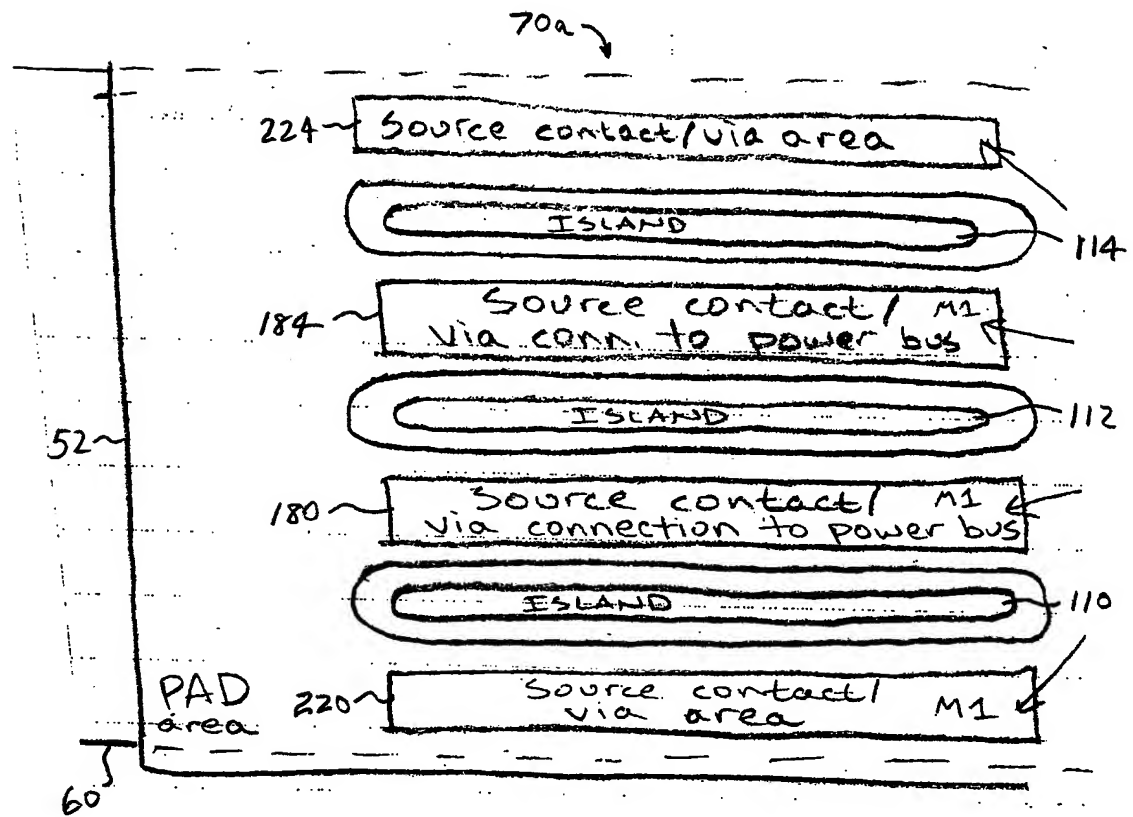 70a
224
Source contact/via area
ISLAND
114
184
Source contact/ M1
via conn. to power bus
ISLAND
112
52
180
Source contact/ M1
via connection to power bus
ISLAND
110
PAD
area
220
Source contact/
via area M1
60